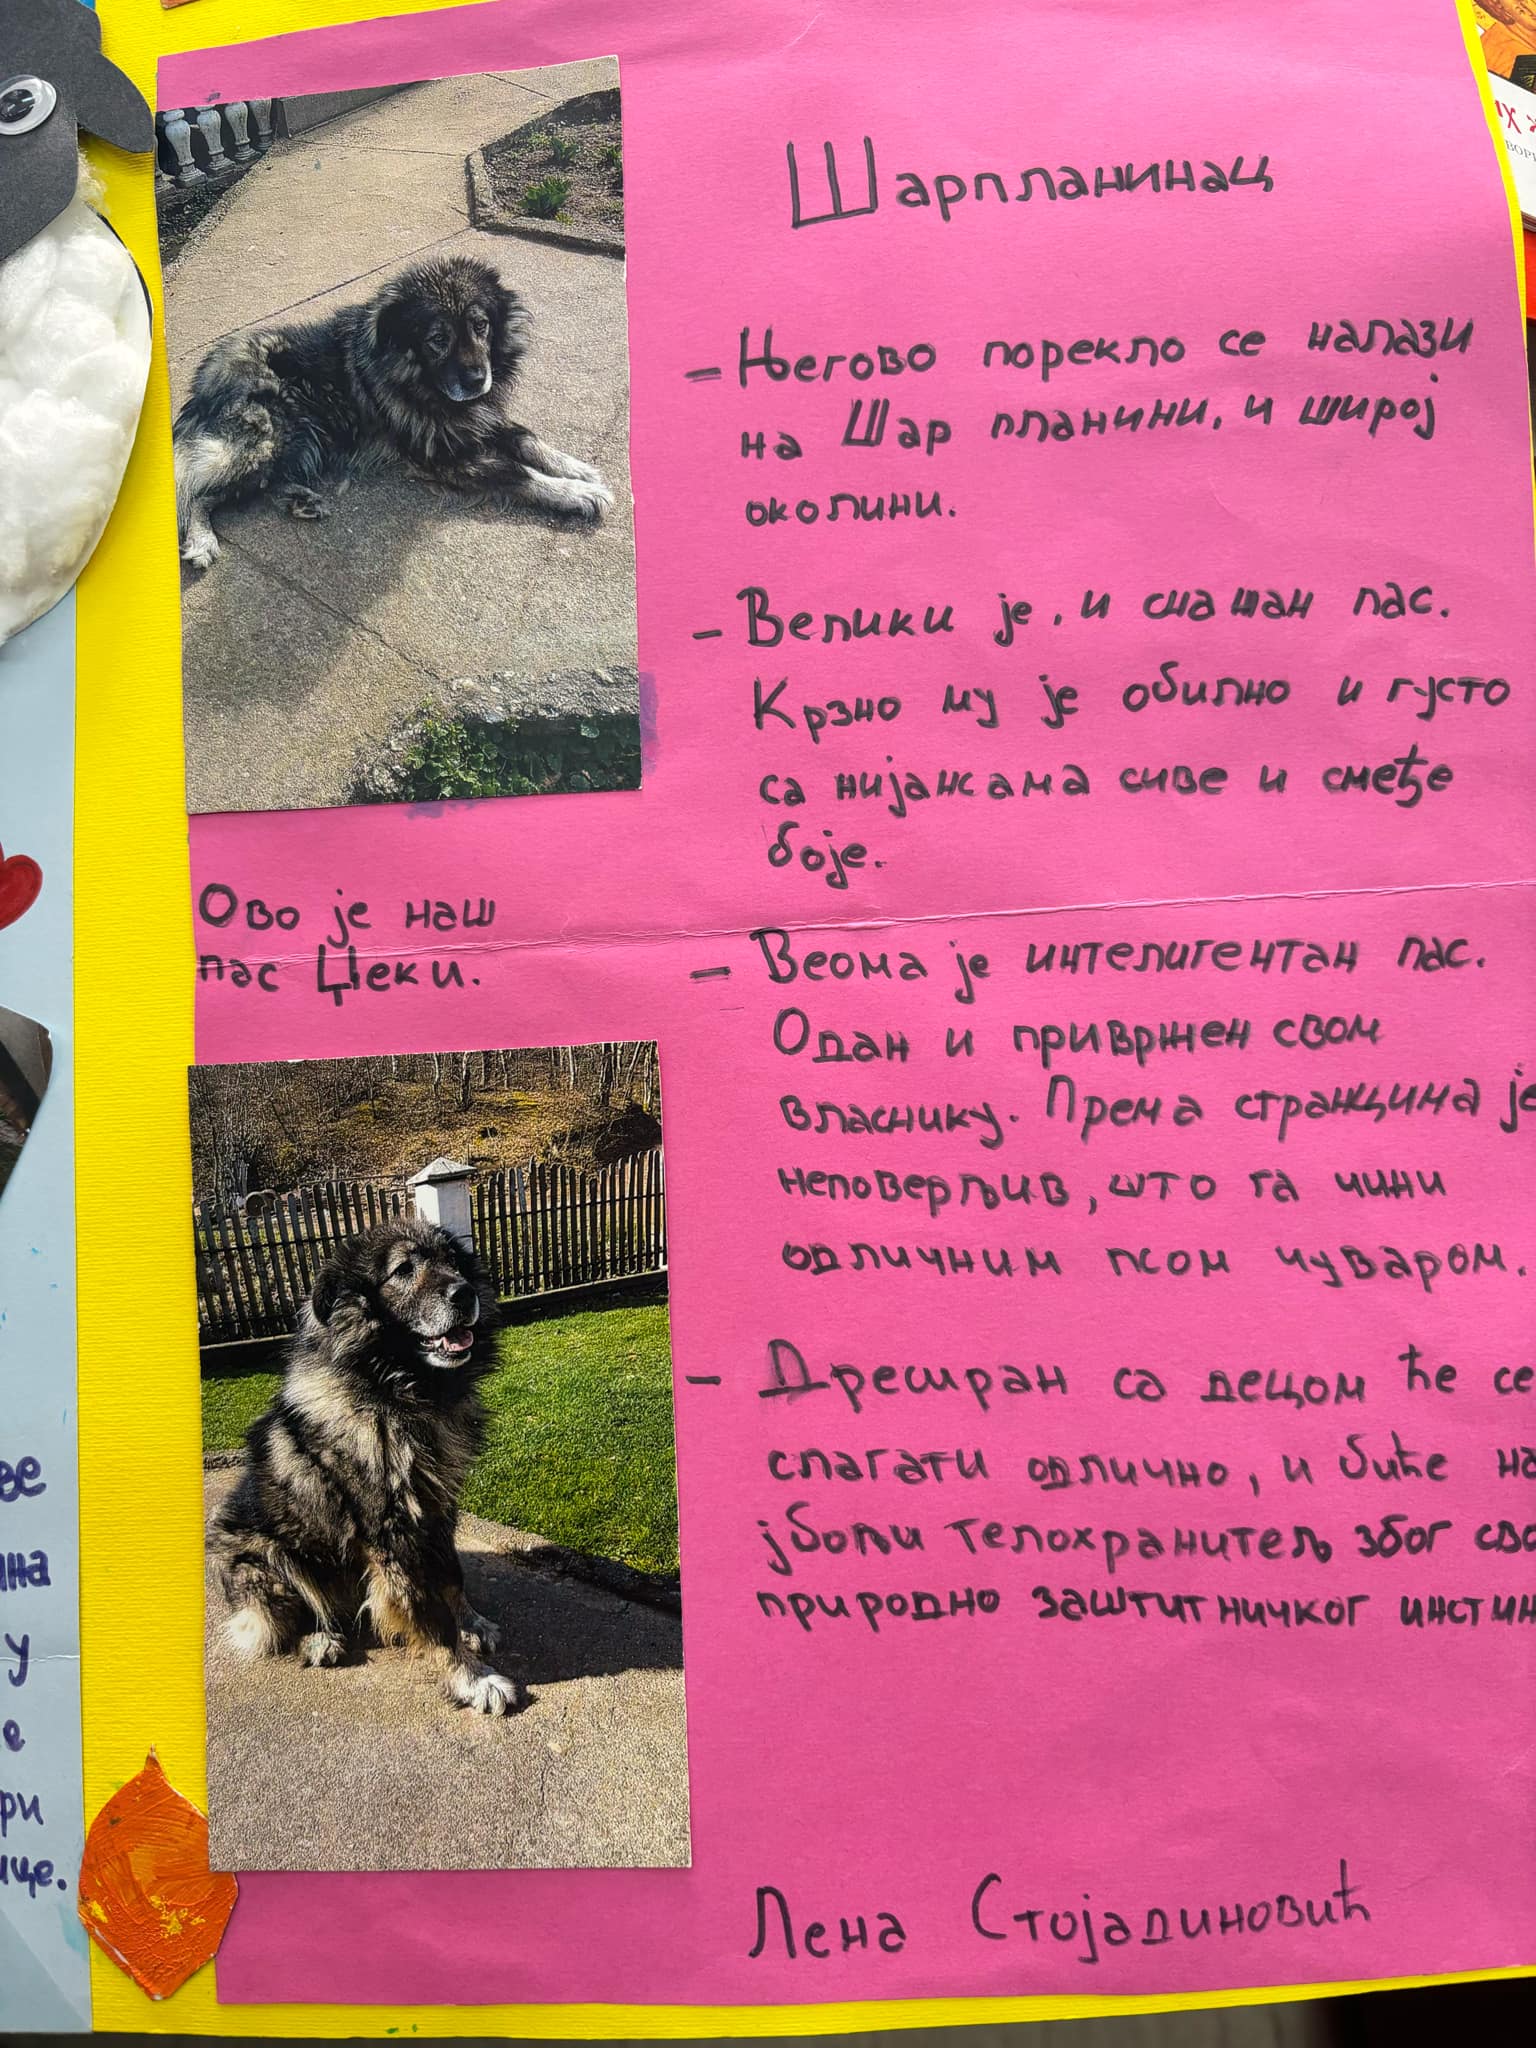 Шарпланинац
- Његово порекло се налази
на Шар планини, и широј
околини.
- Велики је, и снажан пас.
Крзно му је обилно и густо
са нијансама сиве и смеђе
боје.
- Веома је интелигентан пас.
Одан и привржен свом
власнику. Према странцима је
неповерљив, што га чини
одличним псом чуваром.
- Дресиран са децом ће се
слагати одлично, и биће на
јбољи телохранитељ због сво
природно заштитничког инстин
Лена Стојадиновић
Ово је наш
пас Џеки.
ве
у
е
ри
ице.